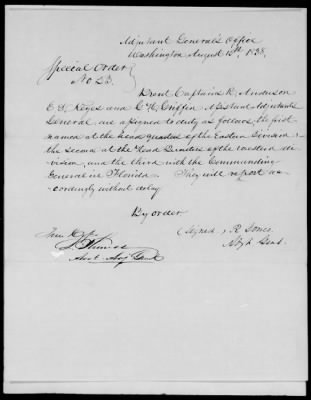 Adjutant General's Office
Washington August 15th, 1838.
Special Order
No 23.
Brevet Captains R. Anderson
E D Keyes and G. H. Griffin Assistant Adjutants
General, are assigned to duty as follows, the first
named at the head quarters of the Eastern Division;
the second at the Head Quarters of the western di-
vision, and the third with the Commanding
General in Florida. They will report ac-
cordingly without delay
By order
(Signed, R Jones
Adj. Genl.
True Copy
Asst Adj Genl